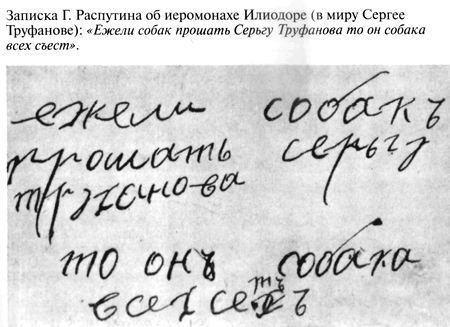 Записка Г. Распутина об иеромонахе Илиодоре (в миру Сергее
Труфанове): «Ежели собак прошать Серьгу Труфанова то он собака
всех съест».
ежели собакъ
прошать серьгу
труханова
то онъ собака
всех